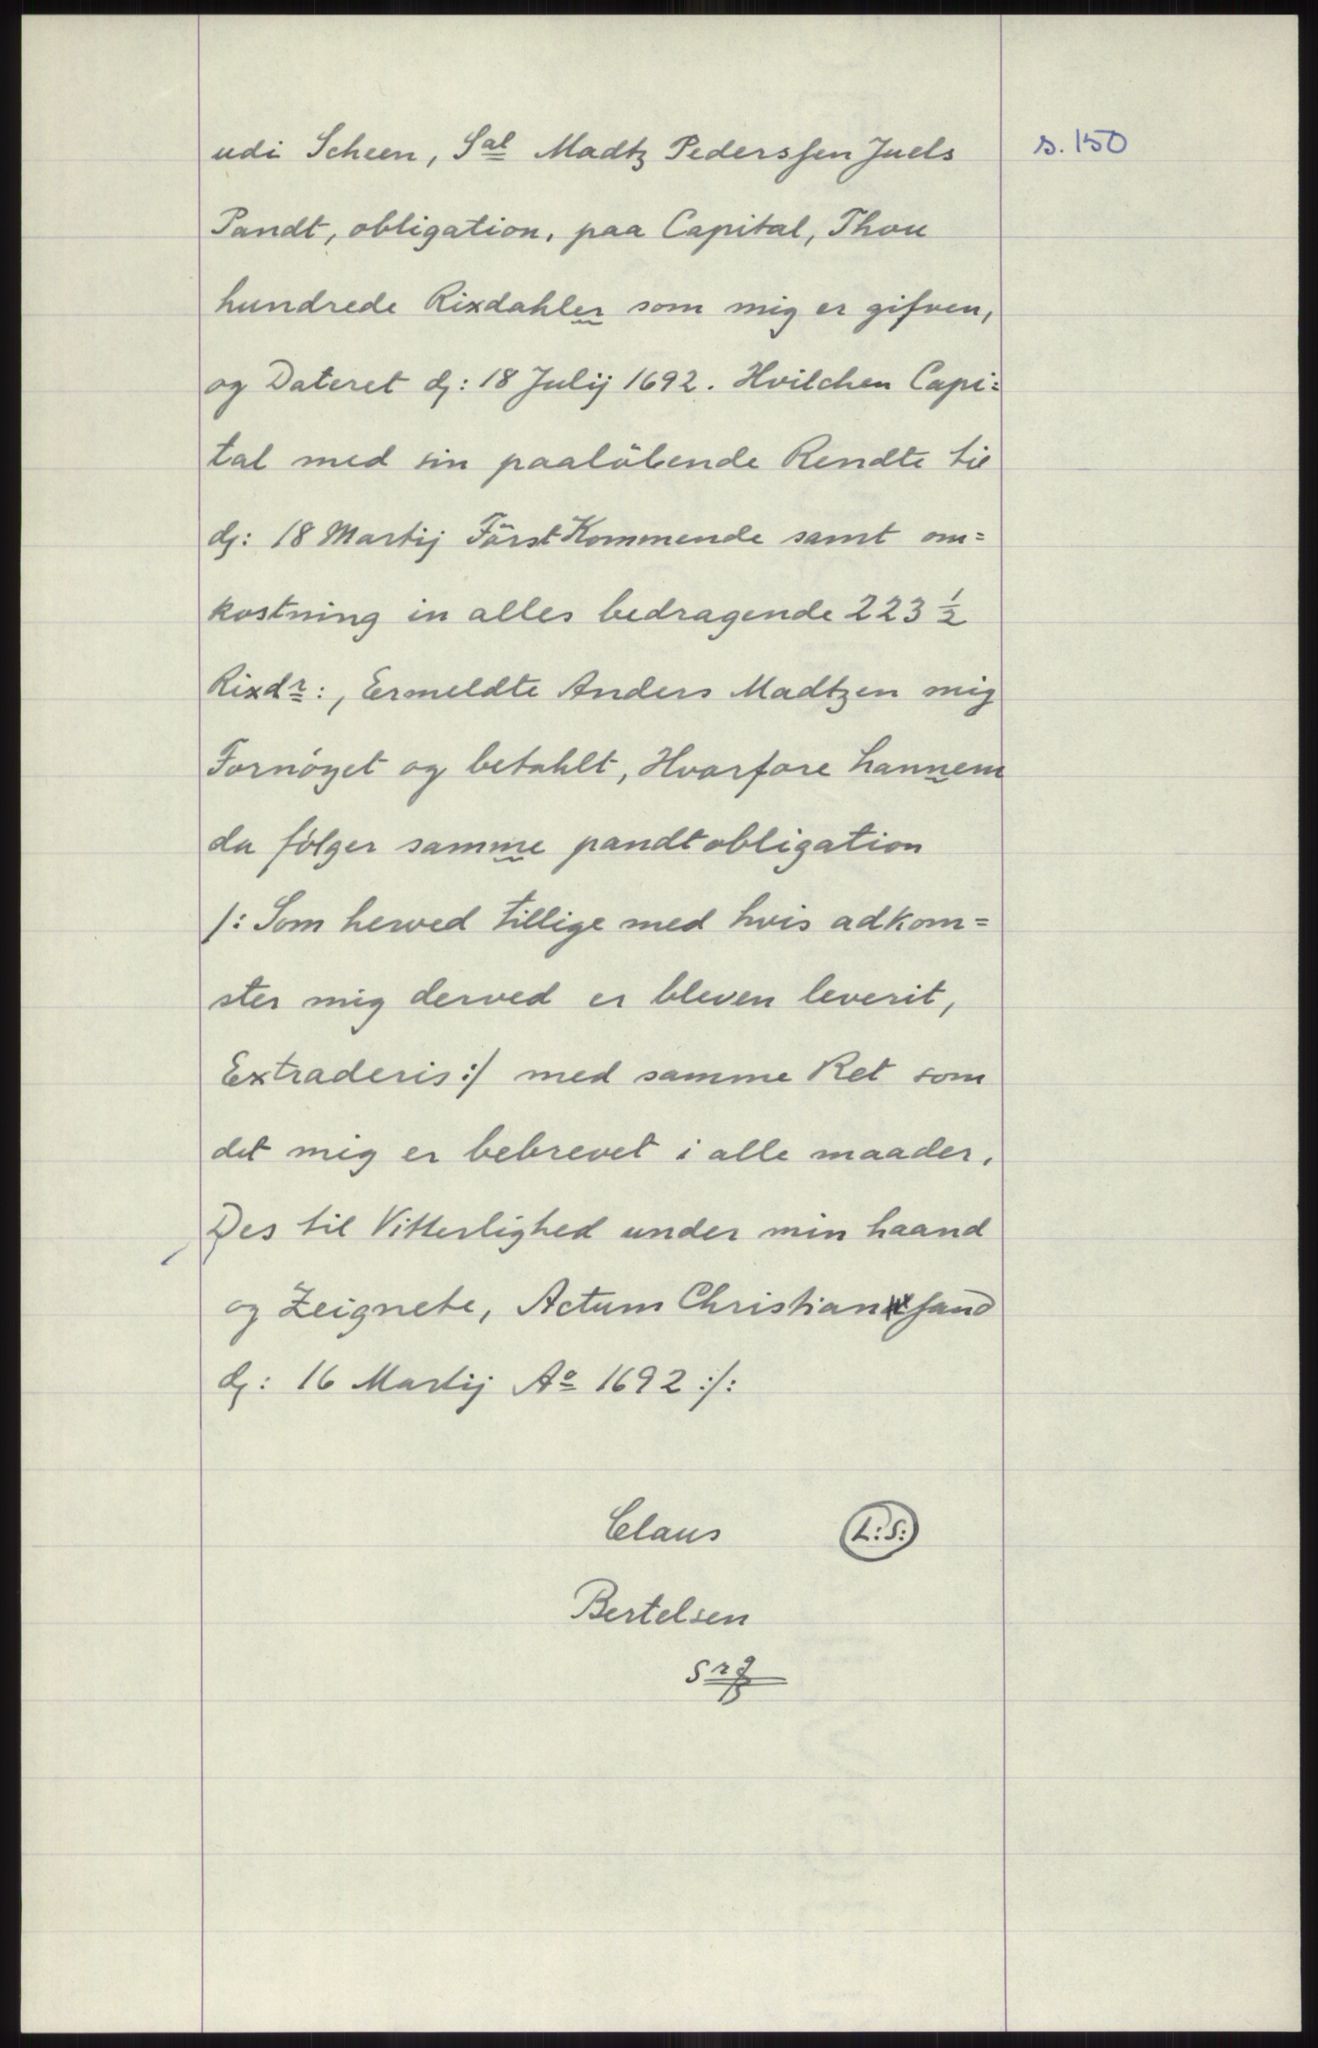 s. 150
udi Scheen, Sal Madtz Pederssen Juels
Pandt, obligation, paa Capital, Thou
hundrede Rixdahler som mig er gifven,
og Dateret dj: 18 Julij 1692. Hvilchen Capi=
tal med sin paalöbende Rendte til
dj: 18 Martij Först Kommende samt om=
kostning in alles bedragende 223 1/2
Rixdr:, Ermeldte Anders Madtzen mig
Fornöyet og betahlt, Hvorfore hannem
da fölger samme pandtobligation
/: Som herved tillige med hvis adkom=
ster mig derved er bleven leverit,
Extraderis :/ med samme Ret som
det mig er bebrevet i alle maader.
Des til Vitterlighed under min haand
og Zeignete, Actum Christiansand
dj: 16 Martij Ao 1692 :/:
Claus L:S:
Bertelsen